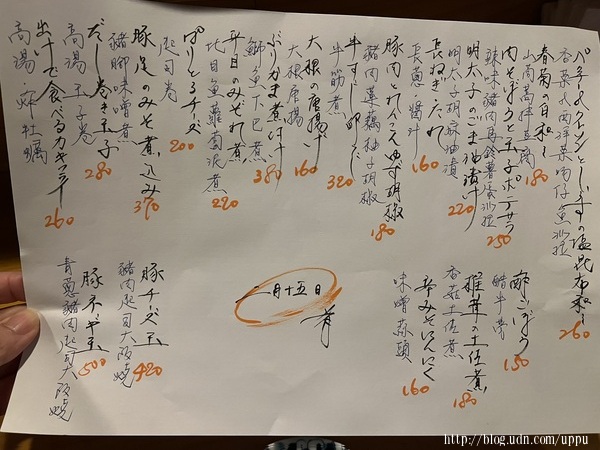 パクチーとクレソンとしらすの塩昆布和え
香菜西洋菜吻仔魚沙拉
260
春菊の白和え
山茼蒿拌豆腐
180
肉そぼろと玉子ポテサラ
辣味豬肉馬鈴薯蛋沙拉
250
明太子のごま油漬け
明太子胡麻油漬
220
長ねぎだれ
長蔥醬汁
160
豚肉とれんこんゆず胡椒
豬肉蓮藕柚子胡椒
180
牛すじ煮
牛筋煮
320
大根の唐揚げ
大根唐揚
160
ぶりかま煮付け
鰤魚下巴煮
380
平目のみぞれ煮
比目魚蘿蔔泥煮
220
ぱりとろチーズ
起司卷
200
豚足のみそ煮込み
豬腳味噌煮
370
だし巻き玉子
高湯玉子卷
280
出汁で食べるカキフライ
高湯炸牡蠣
260
酢ごぼう
醋牛蒡
150
椎茸の土佐煮
香菇土佐煮
180
辛みそにんにく
味噌蒜頭
160
二月十五日
豚チーズ玉
豬肉起司大阪燒
420
豚ネギ玉
青蔥豬肉起司大阪燒
500
http://blog.udn.com/uppu